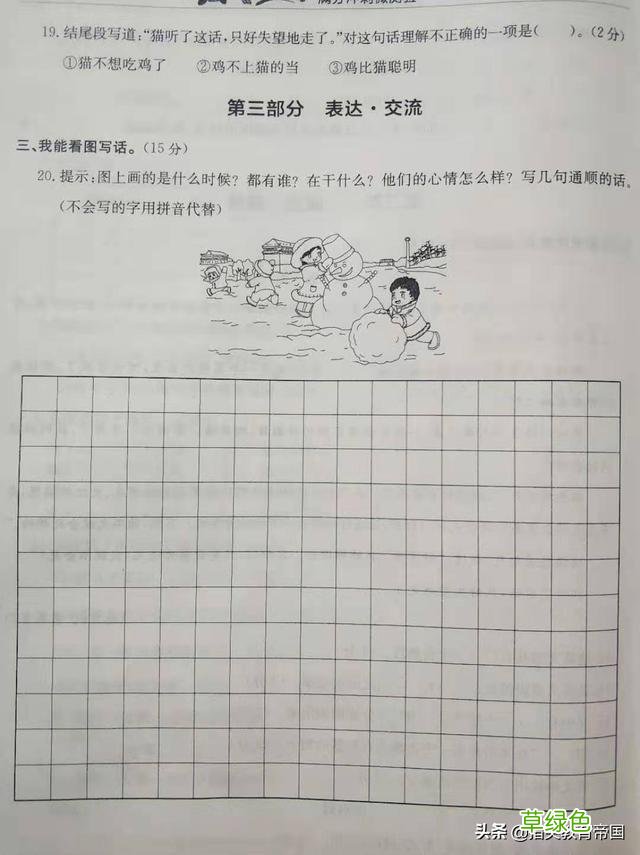 19. 结尾段写道:“猫听了这话,只好失望地走了。”对这句话理解不正确的一项是(　　)。(2分)
①猫不想吃鸡了　②鸡不上猫的当　③鸡比猫聪明
第三部分　表达·交流
三、我能看图写话。(15分)
20. 提示:图上画的是什么时候?都有谁?在干什么?他们的心情怎么样?写几句通顺的话。
(不会写的字用拼音代替)
草绿色
头条 @指尖教育帝国